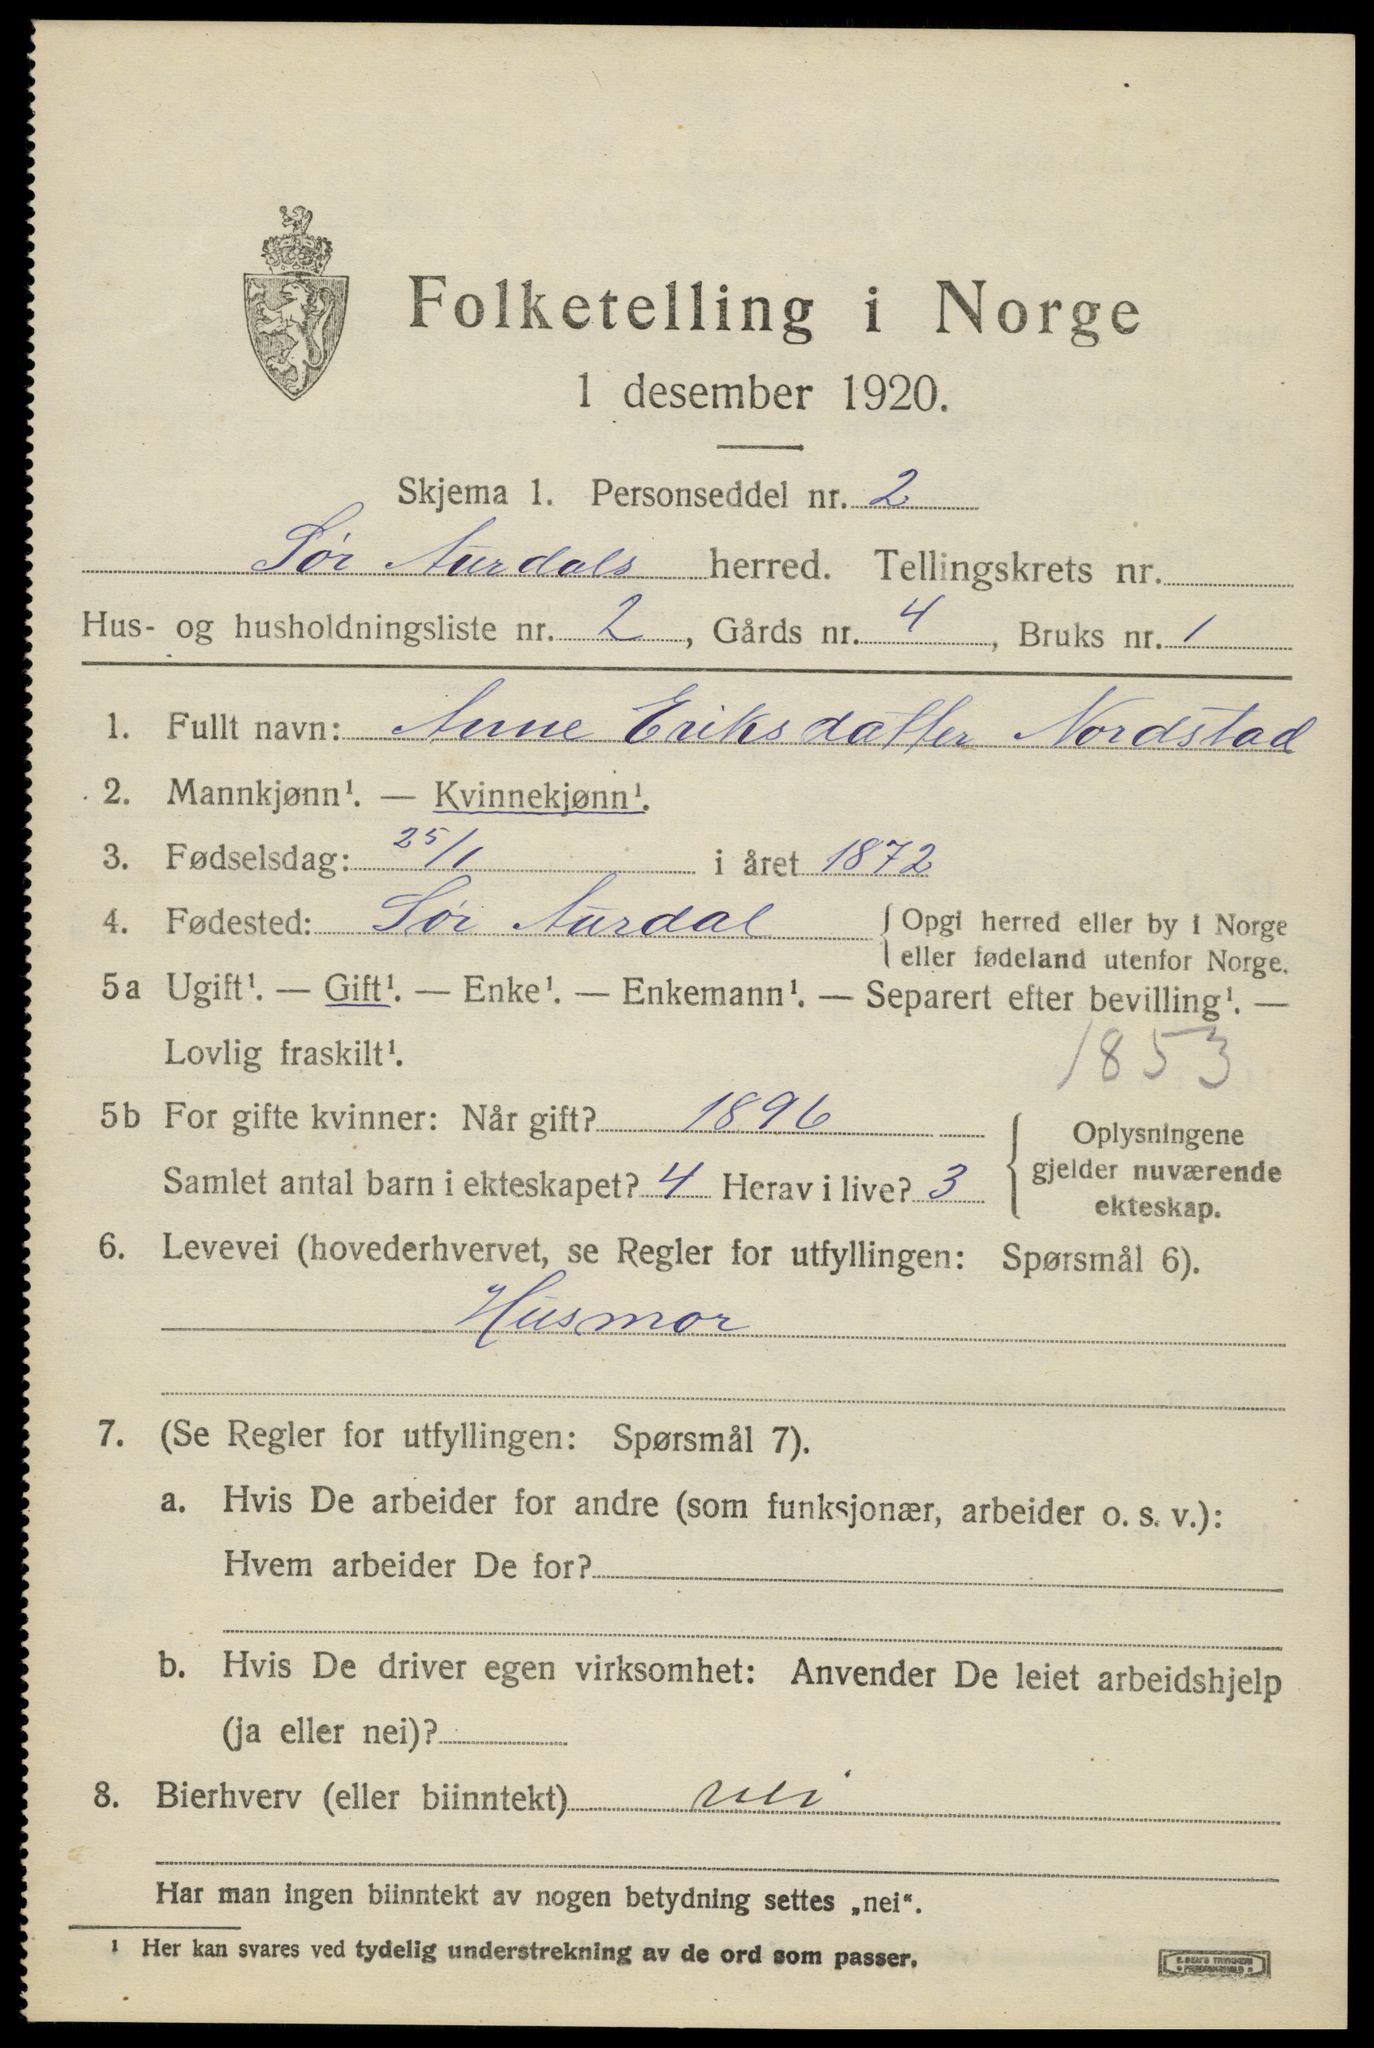 Folketelling i Norge
1 desember 1920.
Skjema 1. Personseddel nr. 2
Sør Aurdals herred. Tellingskrets nr.
Hus- og husholdningsliste nr. 2, Gårds nr. 4, Bruks nr. 1
1. Fullt navn: Anne Eriksdatter Nordstad
2. Mannkjønn¹. — Kvinnekjønn¹.
3. Fødselsdag: 25/1 i året 1872
4. Fødested: Sør Aurdal { Opgi herred eller by i Norge
eller fødeland utenfor Norge.
5a Ugift¹. — Gift¹. — Enke¹. — Enkemann¹. — Separert efter bevilling¹. —
Lovlig fraskilt¹.
1853
5b For gifte kvinner: Når gift? 1896
Samlet antal barn i ekteskapet? 4 Herav i live? 3
Oplysningene
gjelder nuværende
ekteskap.
6. Levevei (hovederhvervet, se Regler for utfyllingen: Spørsmål 6).
Husmor
7. (Se Regler for utfyllingen: Spørsmål 7).
a. Hvis De arbeider for andre (som funksjonær, arbeider o. s. v.):
Hvem arbeider De for?
b. Hvis De driver egen virksomhet: Anvender De leiet arbeidshjelp
(ja eller nei)?
8. Bierhverv (eller biinntekt) nei
Har man ingen biinntekt av nogen betydning settes „nei“.
¹ Her kan svares ved tydelig understrekning av de ord som passer.